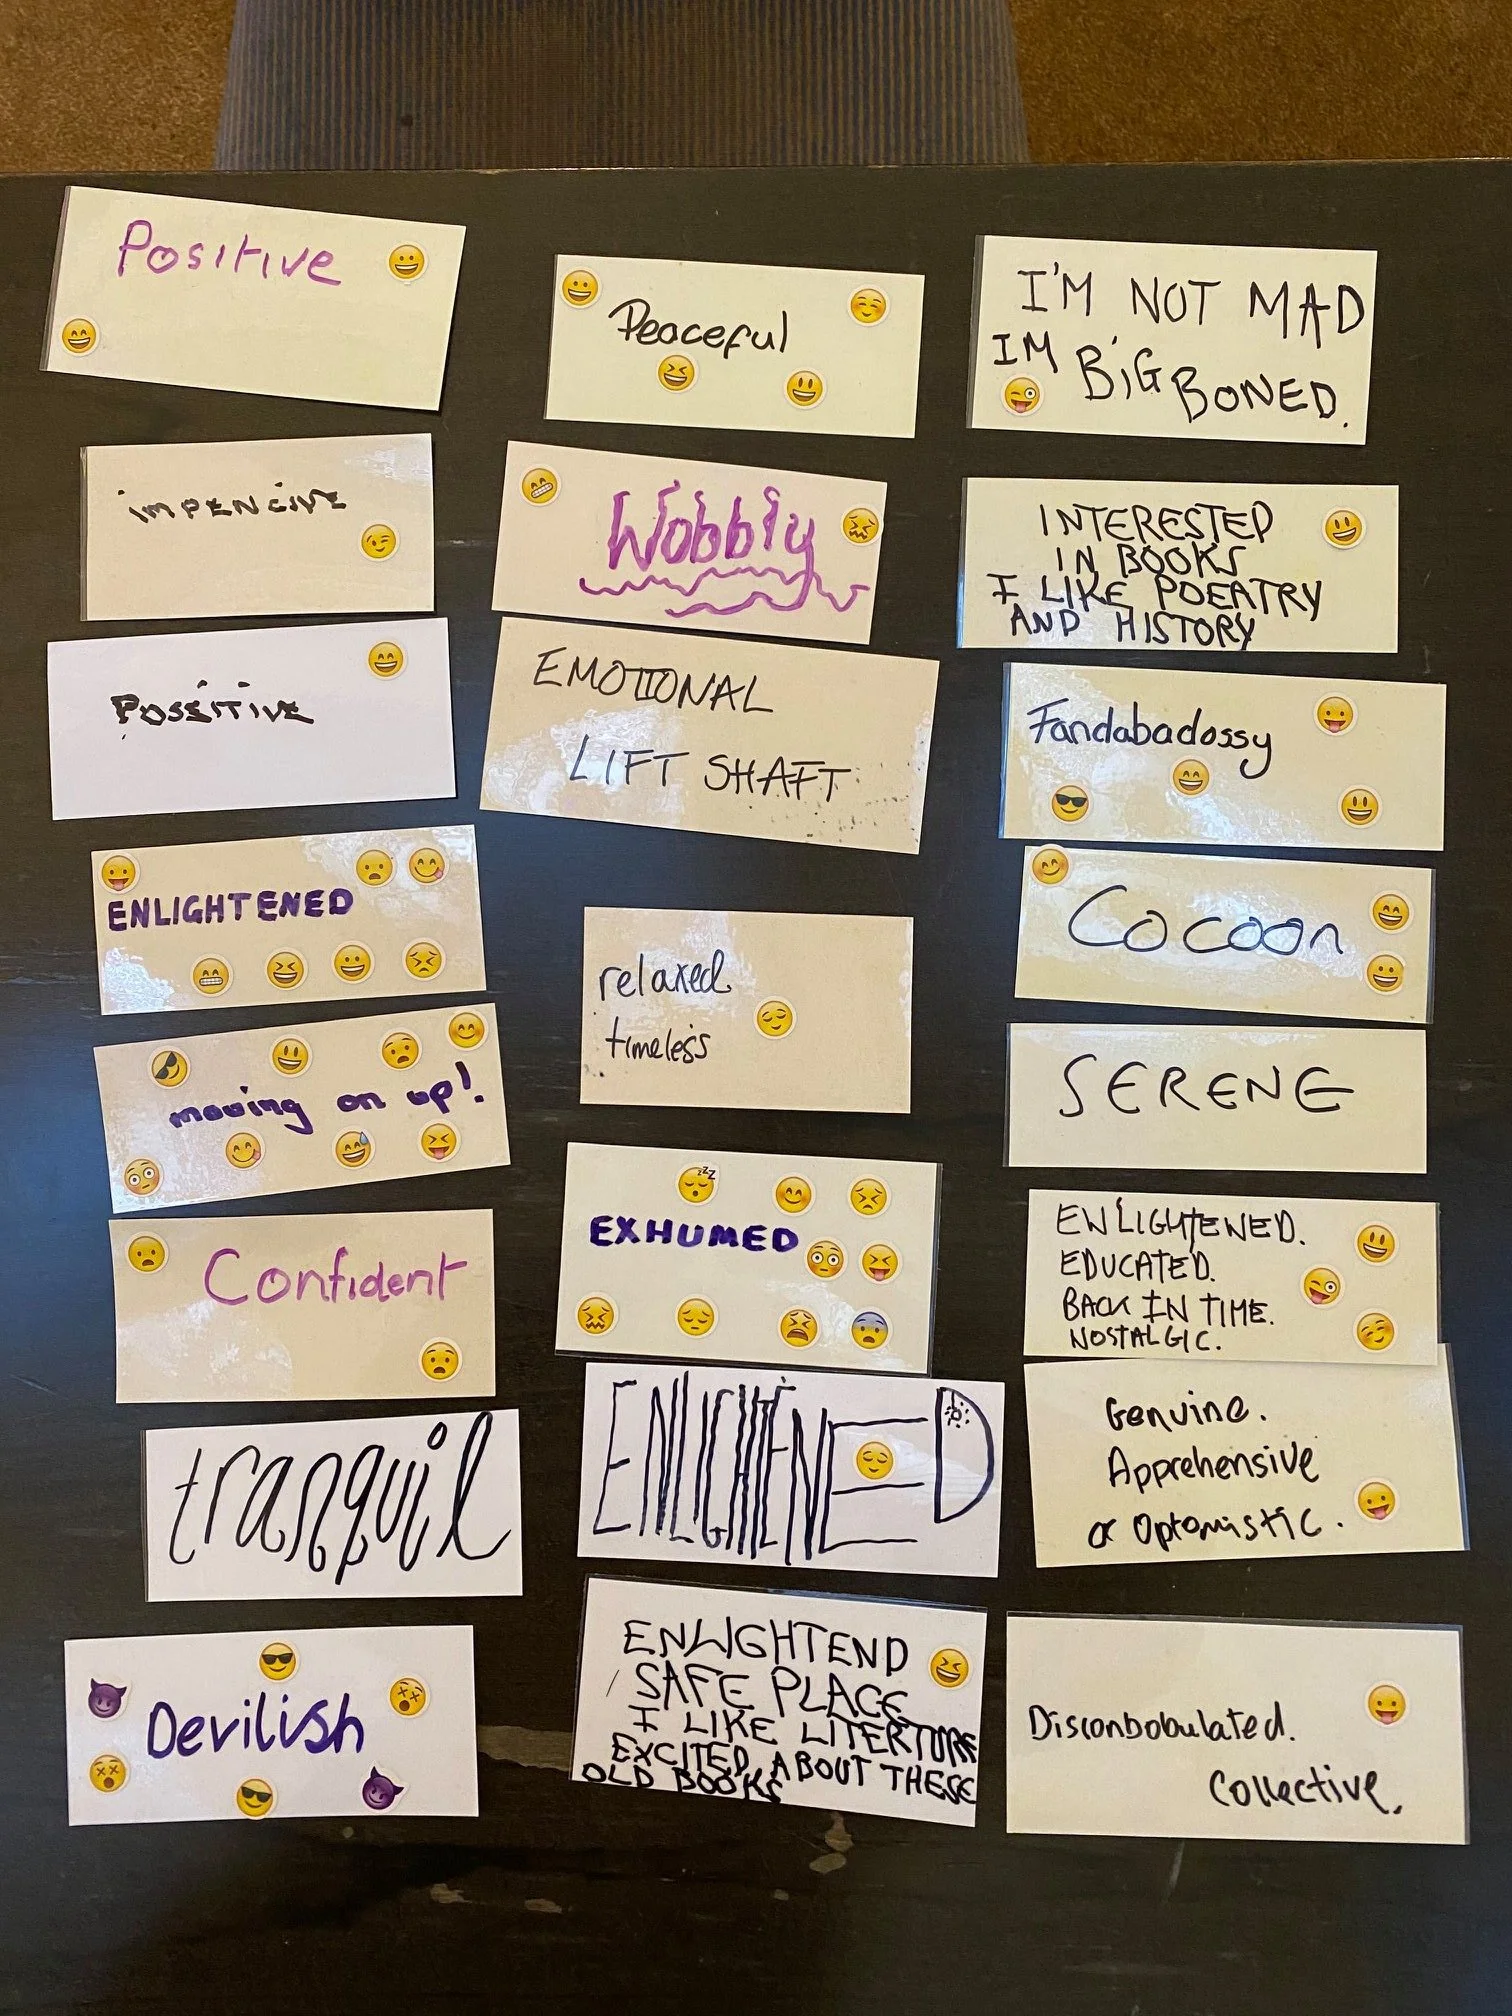 Positive
impencive
Possitive
ENLIGHTENED
moving on up!
Confident
tranquil
Devilish
Peaceful
Wobbly
EMOTIONAL
LIFT SHAFT
relaxed
timeless
EXHUMED
ENLIGHTENED
ENLIGHTEND
SAFE PLACE
I LIKE LITERTURE
EXCITED ABOUT THESE
OLD BOOKS
I'M NOT MAD
IM BiG BONED.
INTERESTED
IN BOOKS
I LIKE POEATRY
AND HISTORY
Fandabadossy
Cocoon
SERENE
ENLIGHTENED.
EDUCATED.
BACK IN TIME.
NOSTALGIC.
Genuine.
Apprehensive
or Optomistic.
Disconbobulated.
Collective.